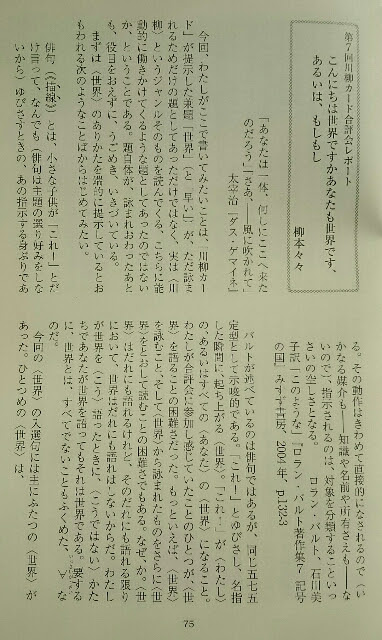 第7回川柳カード合評会レポート
こんにちは世界ですかあなたも世界です、
あるいは、もしもし
柳本々々
「あなたは一体、何しにここへ来た
のだろう」「さあ――風に吹かれて」
太宰治「ダス・ゲマイネ」
今回、わたしがここで書いてみたいことは、「川柳カー
ド」が提示した兼題「世界」と「早い」が、ただ詠ま
れるためだけの題としてあっただけではなく、実は〈川
柳〉というジャンルそのものを読みくくる、こちらに能
動的に働きかけてくるような題としてあったのではない
か、ということである。題自体が、詠まれおわったあと
も、役目をおえずに、うごめき、いきづいている。
まずは〈世界〉のありかたを端的に提示しているとお
もわれる次のようなことばからはじめてみたい。
俳句(《描線》)とは、小さな子供が「これ!」とだ
け言って、なんでも(俳句は主題の選り好みをしな
いから)ゆびさすときの、あの指示する身ぶりであ
る。その動作はきわめて直接的になされるので(い
かなる媒介も――知識や名前や所有さえも――な
いので)、指示されるのは、対象を分類することいっ
さいの空しさとなる。 ロラン・バルト、石川美
子訳「このような」『ロラン・バルト著作集7 記号
の国』みすず書房、2004年、p132-3
バルトが述べているのは俳句ではあるが、同じ五七五
定型として示唆的である。「これ!」とゆびさし、名指
した瞬間に、起ち上がる〈世界〉。「これ!」が〈わたし〉
の、あるいはすべての〈あなた〉の〈世界〉になること。
わたしが合評会に参加し感じていたことのひとつが、〈世
界〉を語ることの困難さだった。もっといえば、〈世界〉
を詠むこと、そして〈世界〉から詠まれたものをさらに〈世
界〉をとおして読むことの困難さでもある。なぜか。〈世
界〉はだれにも語れるけれど、そのだれにも語れる限り
において、世界はだれにも語れはしないからだ。わたし
が世界を〈こう〉語ったときに、〈こうではない〉かた
ちであなたが世界を語ってもそれは世界である。要する
に、世界とは、すべてでないこともふくめた、〈Aかつ非A〉な
のだ。
今回の〈世界〉の入選句には主にふたつの〈世界〉が
あった。ひとつめの〈世界〉は、
75